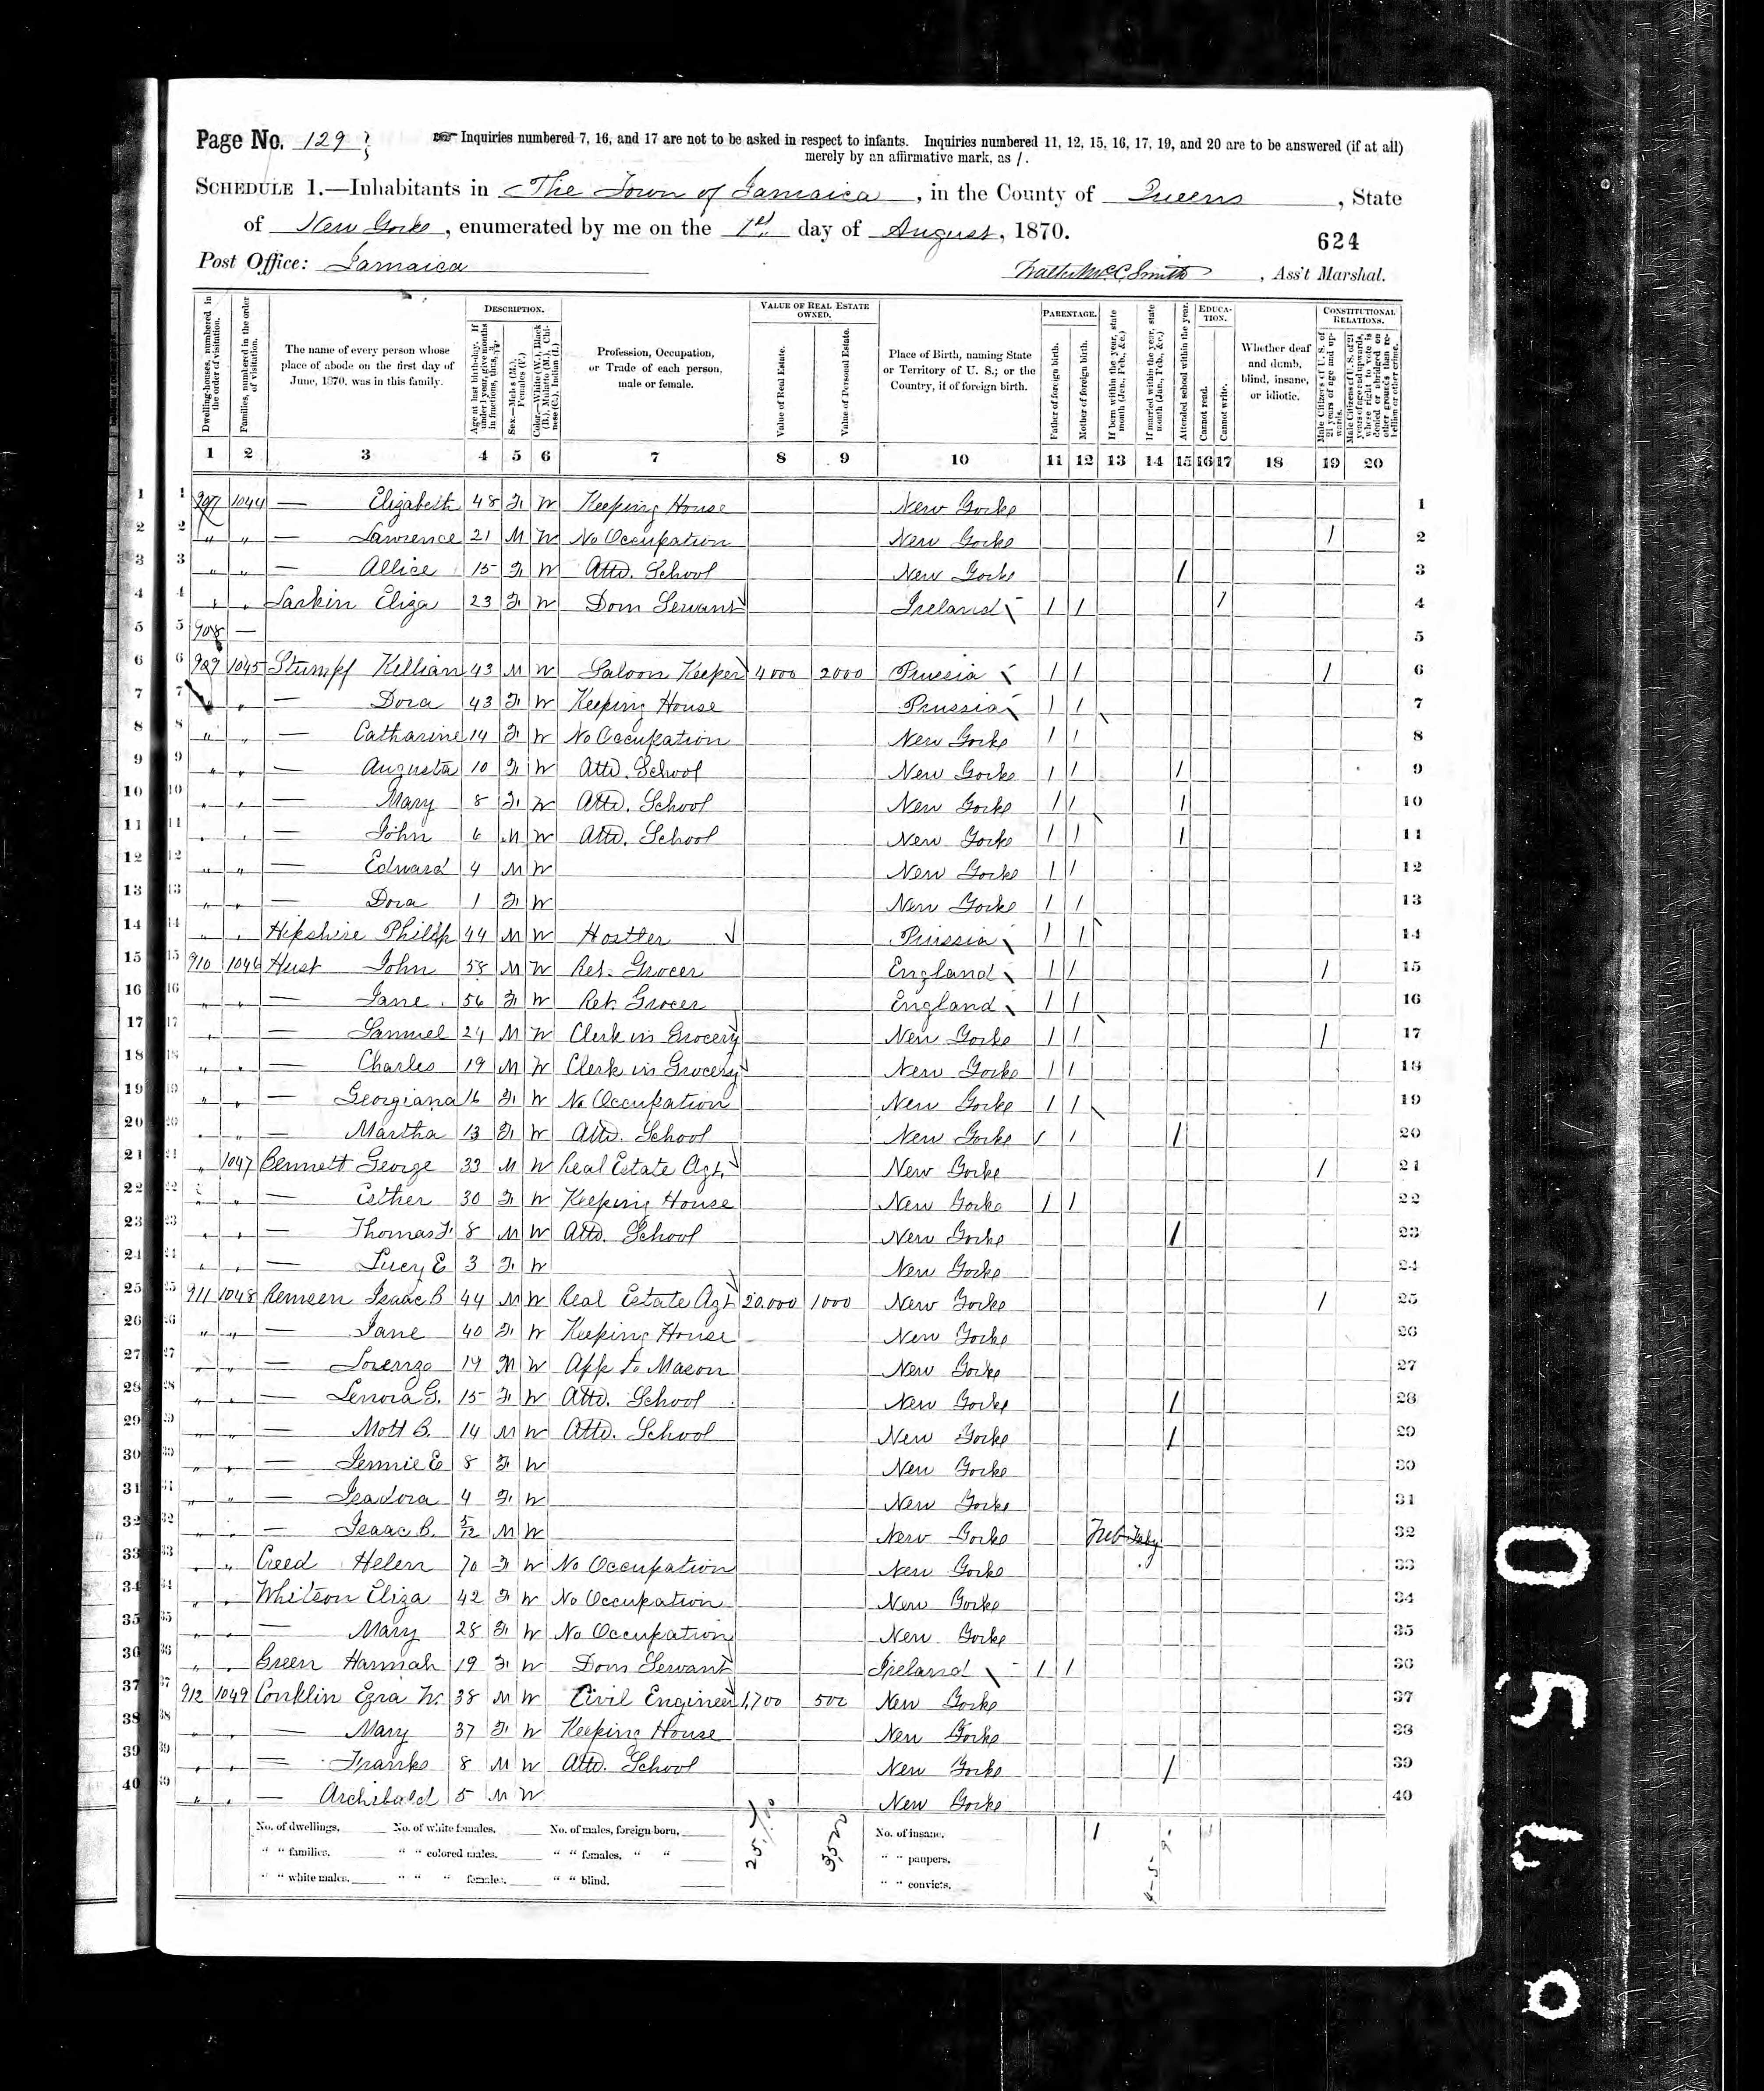 Page No. 129
Inquiries numbered 7, 16, and 17 are not to be asked in respect to infants. Inquiries numbered 11, 12, 15, 16, 17, 19, and 20 are to be answered (if at all)
merely by an affirmative mark, as /.
SCHEDULE 1.—Inhabitants in The Town of Jamaica, in the County of Queens, State
of New York, enumerated by me on the 1st day of August, 1870.
624
Post Office: Jamaica
Smith, Ass't Marshal.
DESCRIPTION.
VALUE OF REAL ESTATE OWNED.
PARENTAGE.
EDUCATION.
CONSTITUTIONAL RELATIONS.
Dwelling-houses, numbered in the order of visitation.
Families, numbered in the order of visitation.
The name of every person whose place of abode on the first day of June, 1870, was in this family.
Age at last birth-day. If under 1 year, give months in fractions, thus, 3/12.
Sex.—Males (M.), Females (F.)
Color.—White (W.), Black (B.), Mulatto (M.), Chinese (C.), Indian (I.)
Profession, Occupation, or Trade of each person, male or female.
Value of Real Estate.
Value of Personal Estate.
Place of Birth, naming State or Territory of U. S.; or the Country, if of foreign birth.
Father of foreign birth.
Mother of foreign birth.
If born within the year, state month (Jan., Feb., &c.)
If married within the year, state month (Jan., Feb., &c.)
Attended school within the year.
Cannot read.
Cannot write.
Whether deaf and dumb, blind, insane, or idiotic.
Male Citizens of U. S. of 21 years of age and upwards.
Male Citizens of U. S. of 21 years of age and upwards, where right to vote is denied or abridged on other grounds than rebellion or other crime.
1 2 3 4 5 6 7 8 9 10 11 12 13 14 15 16 17 18 19 20
1 907 1044 — Elizabeth 48 F W Keeping House New York 1
2 " " — Lawrence 21 M W No Occupation New York / 2
3 " " — Allice 15 F W Attd. School New York / 3
4 " " Larkin Eliza 23 F W Dom Servant Ireland / / / 4
5 908 — 5
6 909 1045 Stumpf Killian 43 M W Saloon Keeper 4000 2000 Prussia / / / 6
7 " — Dora 43 F W Keeping House Prussia / / 7
8 " " — Catharine 14 F W No Occupation New York / / 8
9 " " — Augusta 10 F W Attd. School New York / / / 9
10 " " — Mary 8 F W Attd. School New York / / / 10
11 " " — John 6 M W Attd. School New York / / / 11
12 " " — Edward 4 M W New York / / 12
13 " " — Dora 1 F W New York / / 13
14 " " Hipshire Philip 44 M W Hostler Prussia / / 14
15 910 1046 Hust John 58 M W Ret. Grocer England / / / 15
16 " " — Jane 56 F W Ret. Grocer England / / 16
17 " — Samuel 24 M W Clerk in Grocery New York / / / 17
18 " " — Charles 19 M W Clerk in Grocery New York / / 18
19 " " — Georgiana 16 F W No Occupation New York / / 19
20 " " — Martha 13 F W Attd. School New York / / / 20
21 " 1047 Bennett George 33 M W Real Estate Agt. New York / 21
22 " " — Esther 30 F W Keeping House New York / / 22
23 " " — Thomas F. 8 M W Attd. School New York / 23
24 " " — Lucy E 3 F W New York 24
25 911 1048 Remsen Isaac B 44 M W Real Estate Agt 20.000 1000 New York / 25
26 " " — Jane 40 F W Keeping House New York 26
27 " " — Lorenzo 19 M W App to Mason New York 27
28 " " — Lenora G. 15 F W Attd. School New York / 28
29 " " — Mott B. 14 M W Attd. School New York / 29
30 " " — Jennie E 8 F W New York 30
31 " " — Isadora 4 F W New York 31
32 " " — Isaac B. 5/12 M W New York Feb 32
33 " " Creed Helen 70 F W No Occupation New York 33
34 " " Whitson Eliza 42 F W No Occupation New York 34
35 " " — Mary 28 F W No Occupation New York 35
36 " " Green Hannah 19 F W Dom Servant Ireland / / 36
37 912 1049 Conklin Ezra W. 38 M W Civil Engineer 1,700 500 New York 37
38 " " — Mary 37 F W Keeping House New York 38
39 " " — Franks 8 M W Attd. School New York / 39
40 " " — Archibald 5 M W New York 40
No. of dwellings, No. of white females, No. of males, foreign born, 25,700 3500 No. of insane,
" " families, " " colored males, " " females, " " " " paupers,
" " white males, " " " females, " " blind, " " convicts,